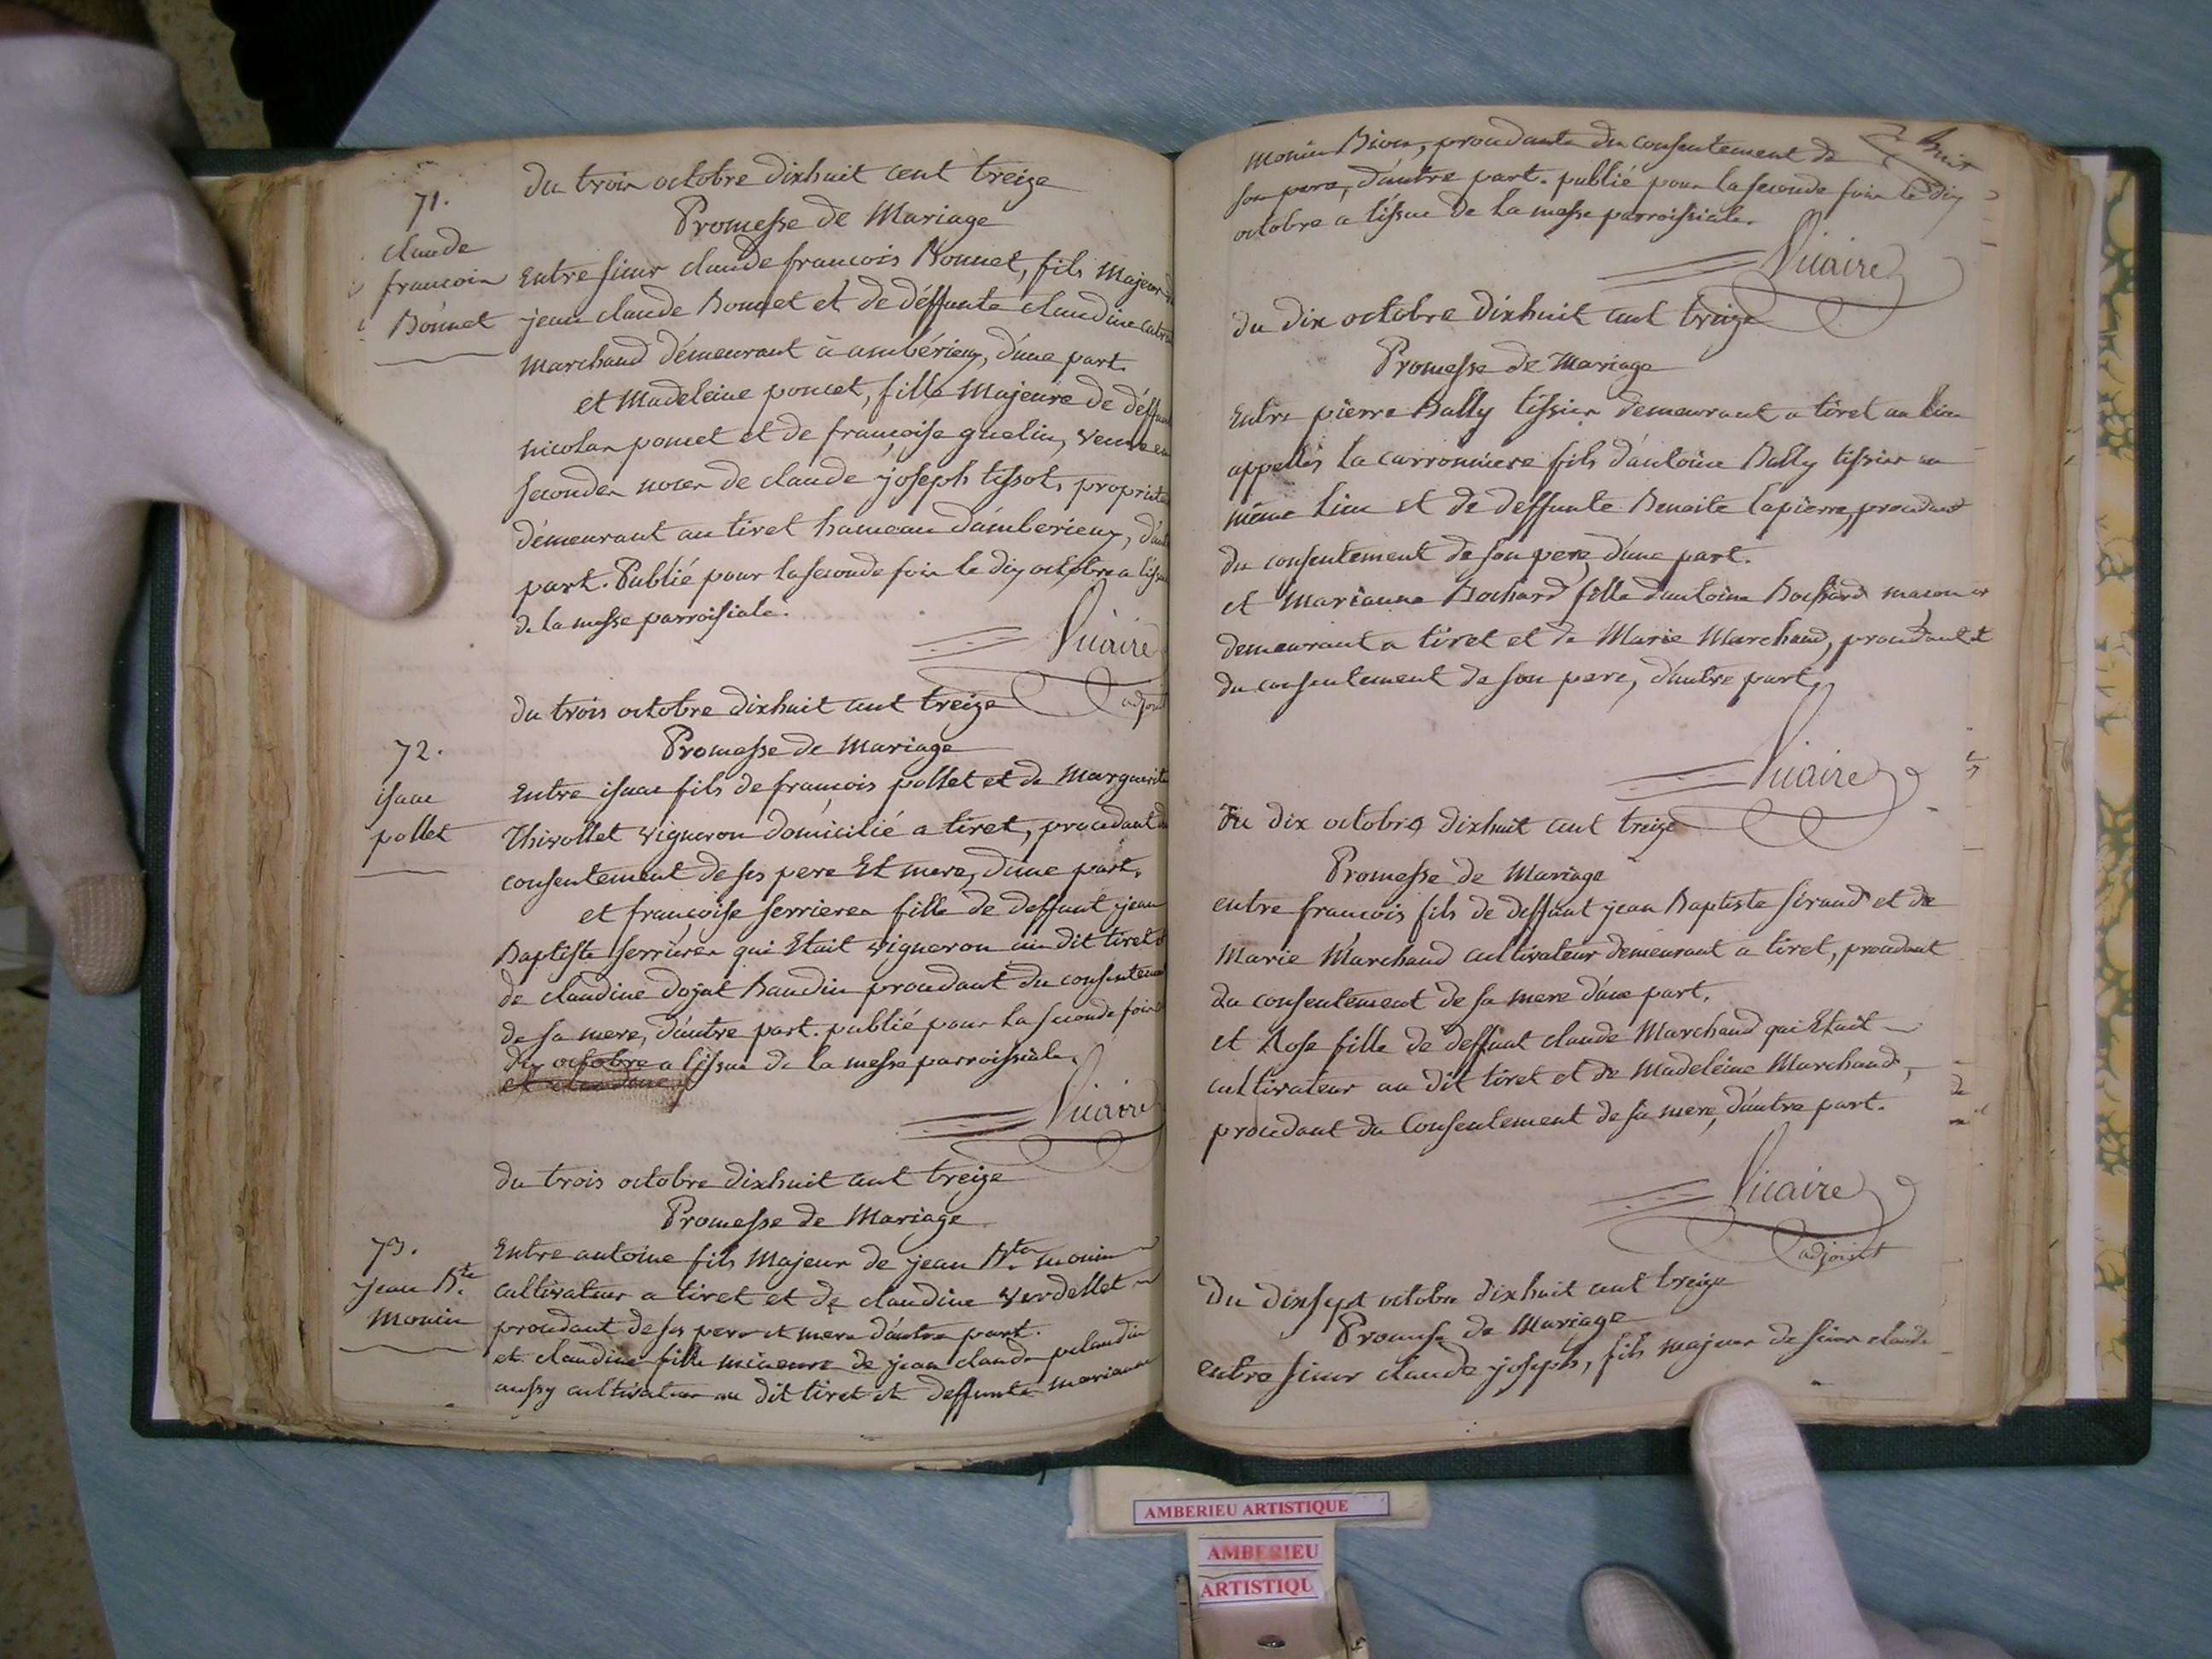 71.
claude
francois
Bonnet
du trois octobre dixhuit cent treize
Promesse de Mariage
Entre sieur claude francois Bonnet, fils Majeur
jean claude Bonnet et de déffunte claudine
marchand démeurant à ambérieux, d'une part.
et Madeleine poncet, fille Majeure de
nicolas poncet et de françoise guelin, veuve en
secondes noces de claude joseph tissot,
démeurant au tiret hameau d'amberieux,
part. Publié pour la seconde fois le dix octobre a
de la messe parroissiale.
Vicaire
adjoint
du trois octobre dixhuit cent treize
72.
isaac
pollet
Promesse de Mariage
Entre isaac fils de françois pollet et de Marguerite
Thivollet vigneron domicilié a tiret, procedant
consentement de ses pere Et mere, d'une part,
et françoise serrieres fille de deffunt jean
Baptiste serrieres qui Etait vigneron au dit tiret
de claudine dojat Baudin procedant du
de sa mere, d'autre part. publié pour la seconde fois
dix octobre a lissue de la messe parroissiale.
et claudine
Vicaire
du trois octobre dixhuit cent treize
Promesse de Mariage
73.
jean Bte
Monin
Entre antoine fils Majeur de jean Bte monin
cultivateur a tiret et de claudine verdellet
procedant de ses pere et mere d'autre part.
et claudine fille mineure de jean claude
aussy cultivateur au dit tiret et deffunte marianne
monin Bion, procedante du consentement de
son pere, d'autre part. publié pour la seconde fois le dix
octobre a l'issue de la messe parroissiale.
Vicaire
du dix octobre dixhuit cent treize
Promesse de Mariage
Entre pierre Bally tissier demeurant a tiret au lieu
appellés la carronniere fils d'antoine Bally tissier au
même lieu et de deffunte Benoite lapierre, procedant
du consentement de son pere, d'une part.
et Marianne Bochard fille d'antoine Bochard macon
demeurant a tiret et de Marie Marchand, procedant
du consentement de son pere, d'autre part,
Vicaire
Du dix octobre dixhuit cent treize
Promesse de Mariage
entre francois fils de deffunt jean Baptiste sirand et de
Marie Marchand cultivateur demeurant a tiret, procedant
du consentement de sa mere d'une part,
et Rose fille de deffunt claude Marchand qui Etait
cultivateur au dit tiret et de Madeleine Marchand,
procedant du Consentement de sa mere, d'autre part.
Vicaire
adjoint
Du dixsept octobre dixhuit cent treize
Promesse de Mariage
entre sieur claude joseph, fils majeur de sieur claude
AMBERIEU ARTISTIQUE
AMBERIEU
ARTISTIQU